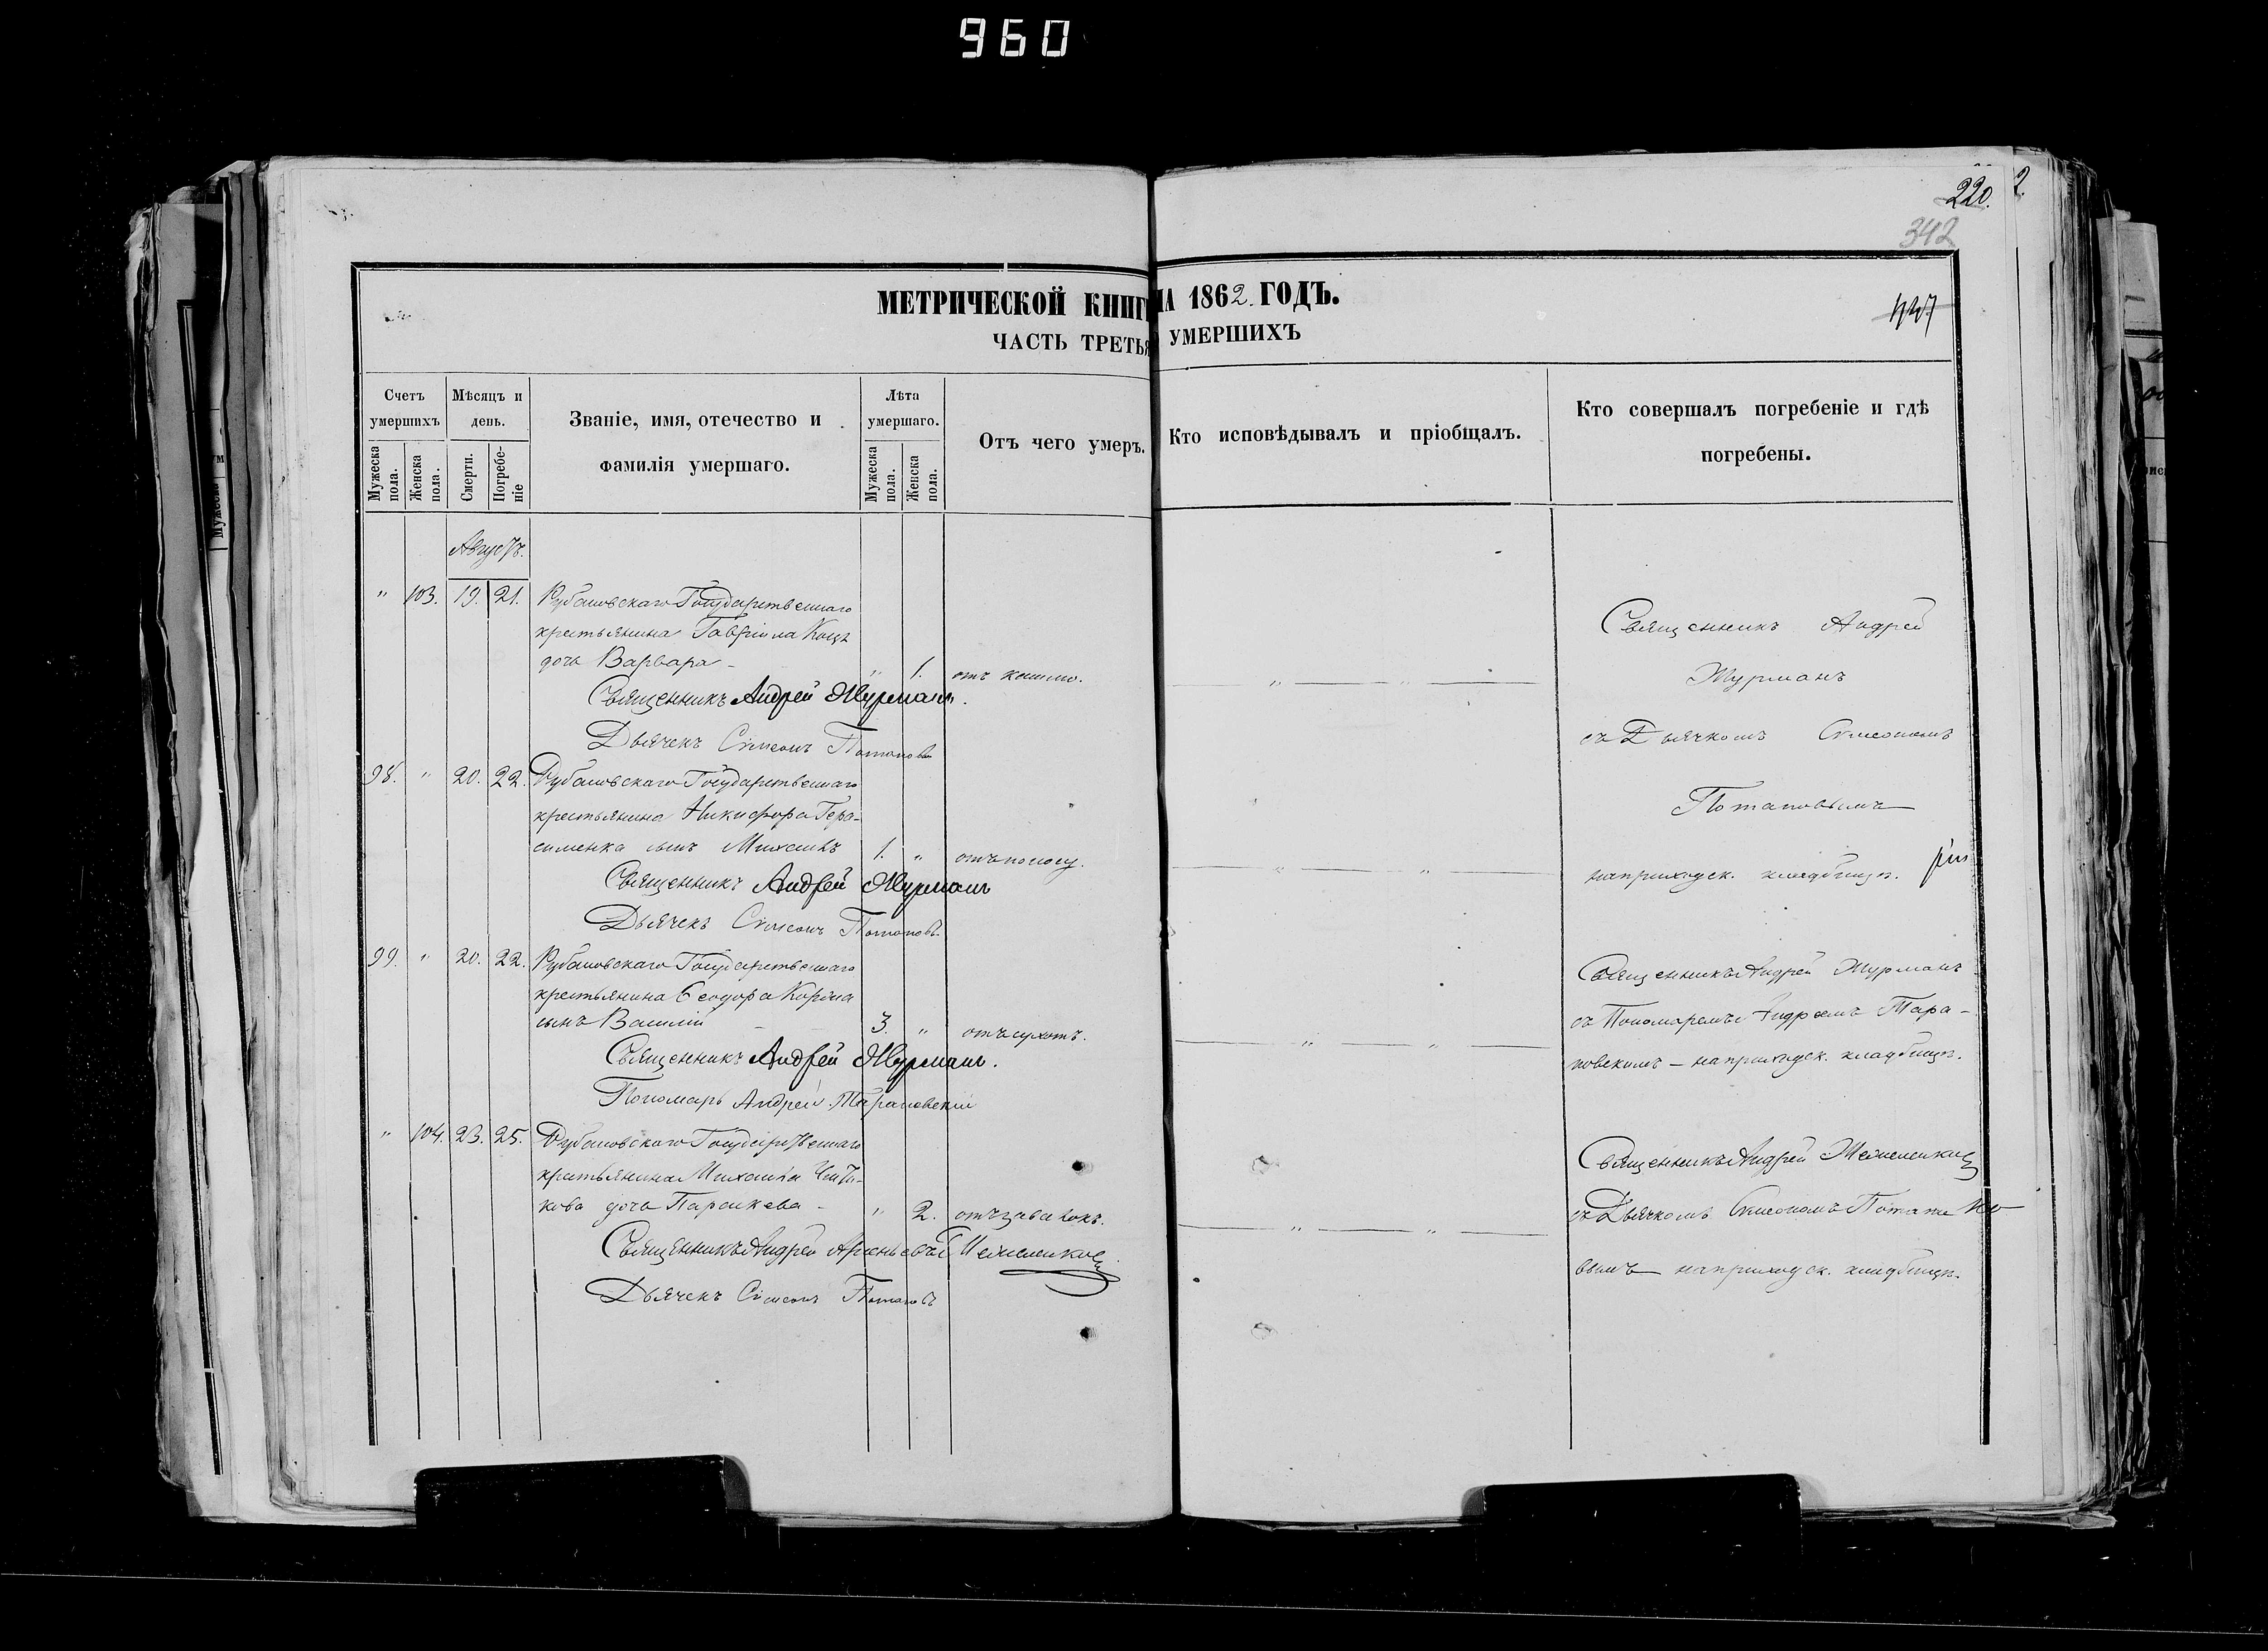 960
220.
342
МЕТРИЧЕСКОЙ КНИГ НА 1862. ГОДЪ.
ЧАСТЬ ТРЕТЬЯ УМЕРШИХЪ
Счетъ умершихъ
Мѣсяцъ и день.
Званіе, имя, отечество и фамилія умершаго.
Лѣта умершаго.
Отъ чего умеръ.
Кто исповѣдывалъ и пріобщалъ.
Кто совершалъ погребеніе и гдѣ погребены.
Мужеска пола.
Женска пола.
Смерти.
Погребеніе
Мужеска пола.
Женска пола.
Августъ.
" 103. 19. 21. Рубановскаго Государственнаго
крестьянина Гавріила
дочь Варвара - " 1. отъ кашлю.
Священникъ Андрей Журманъ.
Дьячекъ Симеонъ Потаповъ
Священникъ Андрей
Журманъ
съ Дьячкомъ Симеономъ
Потаповымъ
на приходск. кладбищѣ.
98. " 20. 22. Рубановскаго Государственнаго
крестьянина Никифора Гера-
сименка сынъ Михаилъ 1. " отъ поносу.
Священникъ Андрей Журманъ
Дьячекъ Симеонъ Потаповъ
99. " 20. 22. Рубановскаго Государственнаго
крестьянина Ѳеодора
сынъ Василій - 3. " отъ сухотъ.
Священникъ Андрей Журманъ.
Пономарь Андрей Тарановскій
Священникъ Андрей Журманъ
съ Пономаремъ Андреемъ Тара-
новскимъ – на приходск. кладбищѣ.
" 104. 23. 25. Рубановскаго Государственнаго
крестьянина Михаила
дочь Параскева - " 2. отъ завалокъ.
Священникъ Андрей
Дьячекъ Симеонъ Потаповъ
Священникъ Андрей
съ Дьячкомъ Симеономъ Потапо
вымъ на приходск. кладбищѣ.